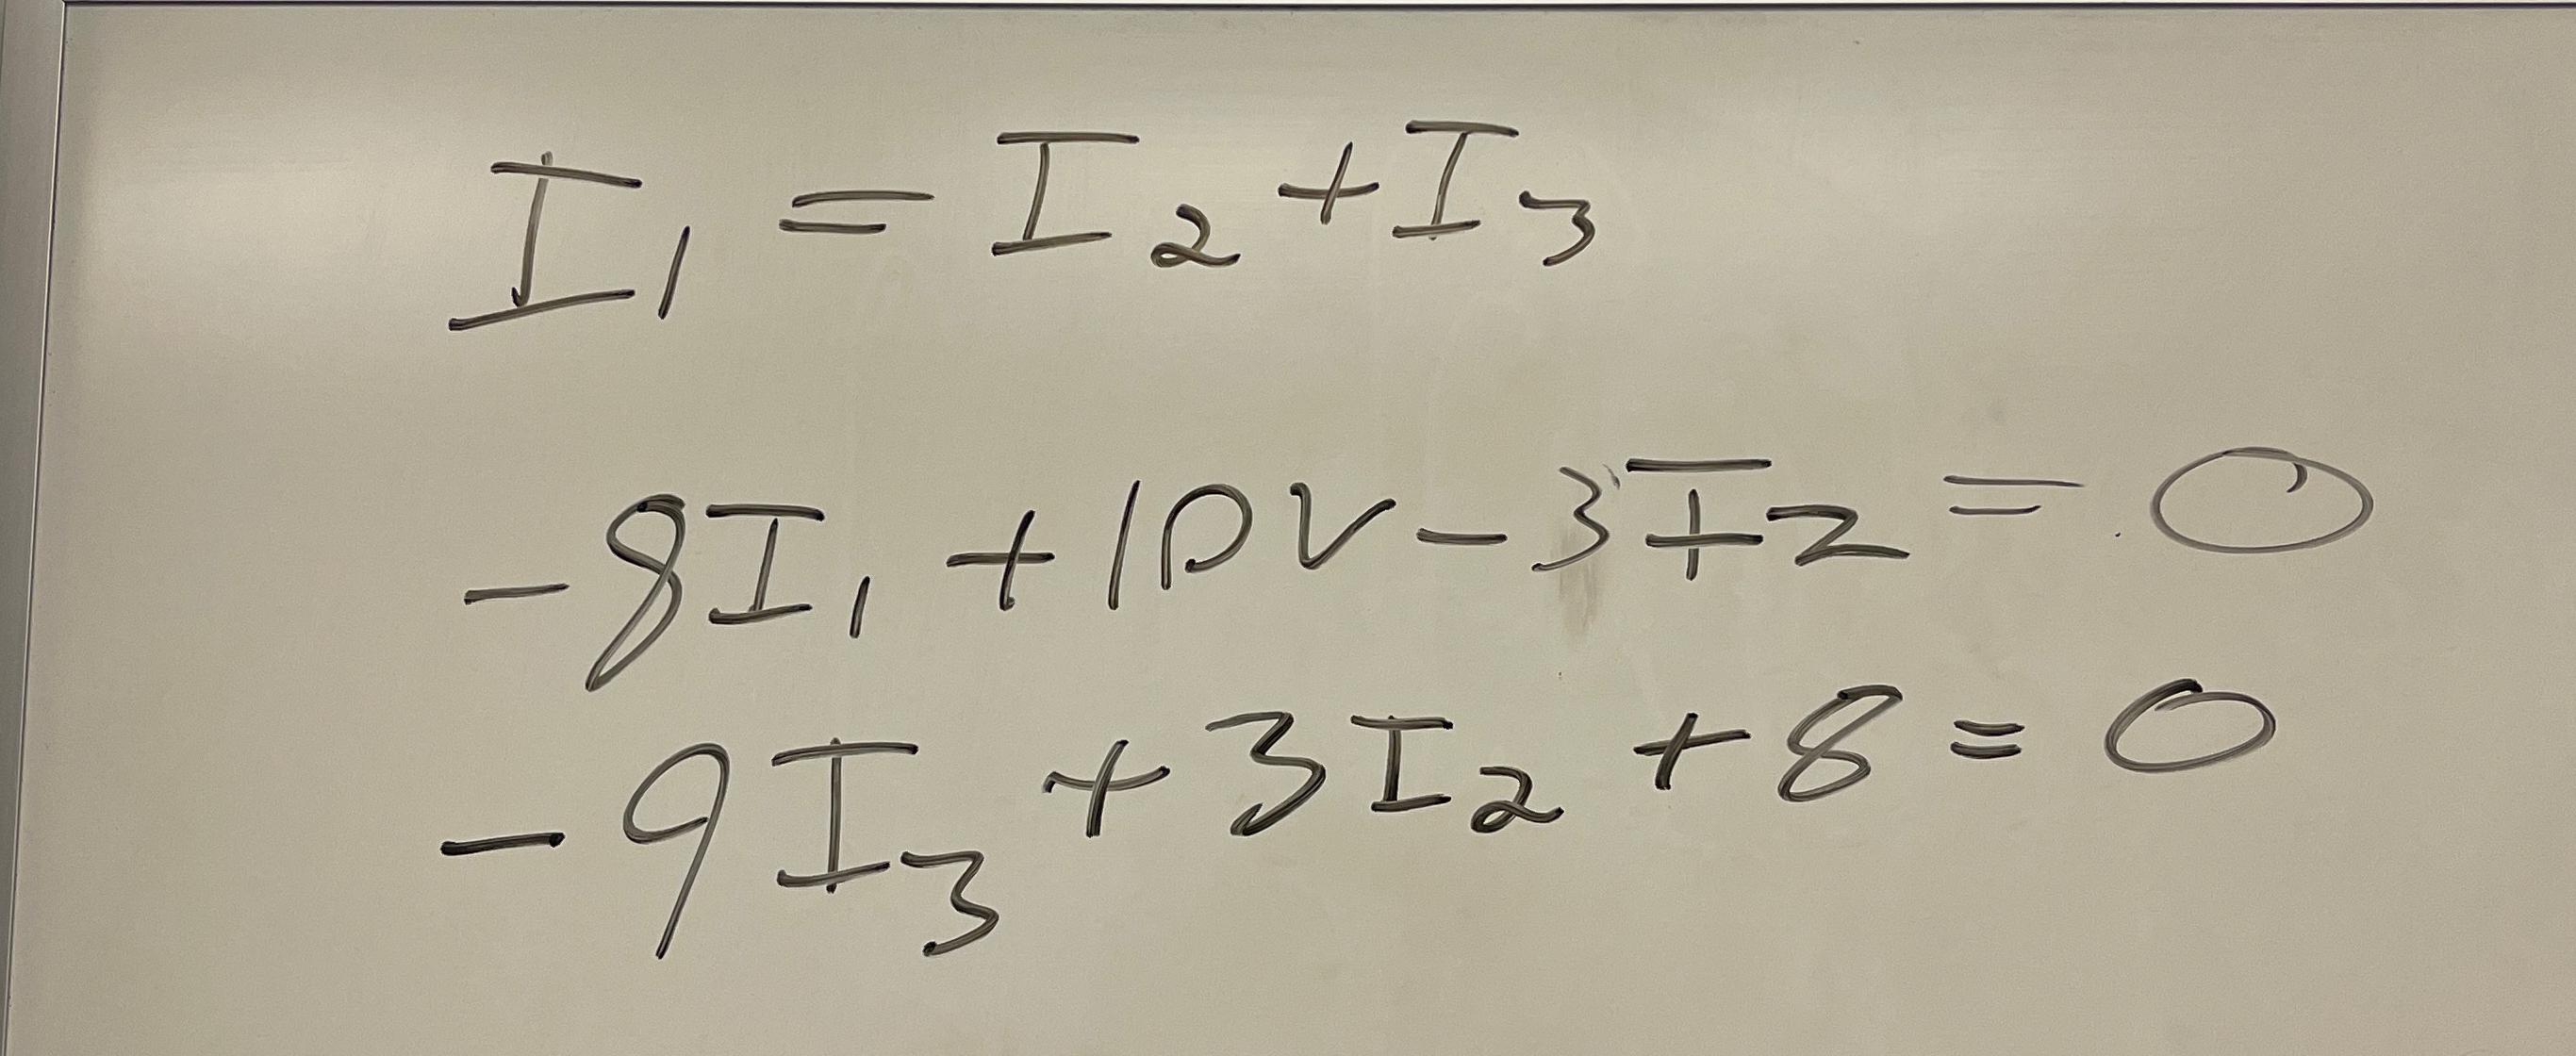 I₁ = I₂ + I₃
-8I₁ + 10V - 3I₂ = 0
-9I₃ + 3I₂ + 8 = 0